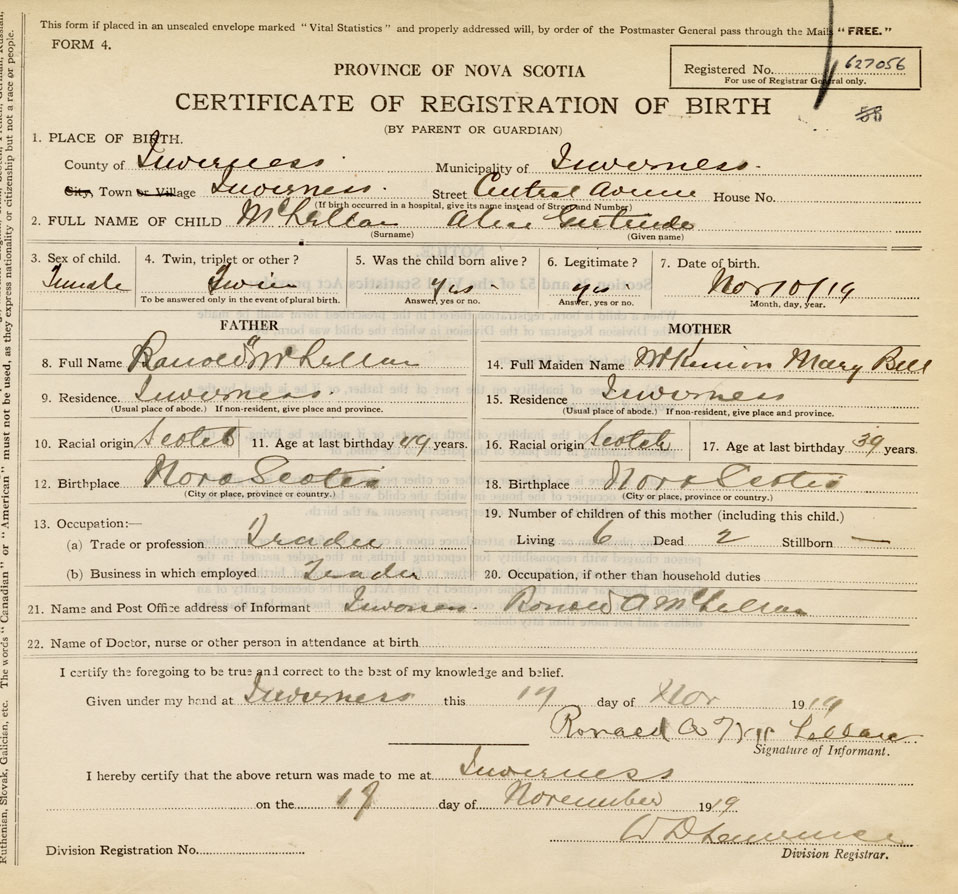 This form if placed in an unsealed envelope marked "Vital Statistics" and properly addressed will, by order of the Postmaster General pass through the Mails "FREE."
FORM 4.
PROVINCE OF NOVA SCOTIA
Registered No. 627056
For use of Registrar General only.
CERTIFICATE OF REGISTRATION OF BIRTH
(BY PARENT OR GUARDIAN)
1. PLACE OF BIRTH.
County of Inverness Municipality of Inverness.
City, Town or Village Inverness. Street Central Avenue House No.
(If birth occurred in a hospital, give its name instead of Street and Number)
2. FULL NAME OF CHILD McLellan Alice Gertrude
(Surname) (Given name)
3. Sex of child. 4. Twin, triplet or other? 5. Was the child born alive? 6. Legitimate? 7. Date of birth.
Female Twin yes - yes Nov 10/19
To be answered only in the event of plural birth. Answer, yes or no. Answer, yes or no. Month, day, year.
FATHER MOTHER
8. Full Name Ranold McLellan 14. Full Maiden Name McKinnon Mary Bell
9. Residence. Inverness. 15. Residence Inverness
(Usual place of abode.) If non-resident, give place and province. (Usual place of abode.) If non-resident, give place and province.
10. Racial origin Scotch 11. Age at last birthday 49 years. 16. Racial origin Scotch 17. Age at last birthday 39 years.
12. Birthplace Nova Scotia 18. Birthplace Nova Scotia
(City or place, province or country.) (City or place, province or country.)
13. Occupation:— 19. Number of children of this mother (including this child.)
(a) Trade or profession Trader Living 6 Dead 2 Stillborn —
(b) Business in which employed Trader 20. Occupation, if other than household duties
21. Name and Post Office address of Informant Inverness. Ronald A McLellan
22. Name of Doctor, nurse or other person in attendance at birth
I certify the foregoing to be true and correct to the best of my knowledge and belief.
Given under my hand at Inverness this 19 day of Nov 1919
Ronald A McLellan
Signature of Informant.
I hereby certify that the above return was made to me at Inverness
on the 19 day of November 1919
W D Lawrence
Division Registration No.
Division Registrar.
Ruthenian, Slovak, Galician, etc. The words "Canadian" or "American" must not be used, as they express nationality or citizenship but not a race or people.